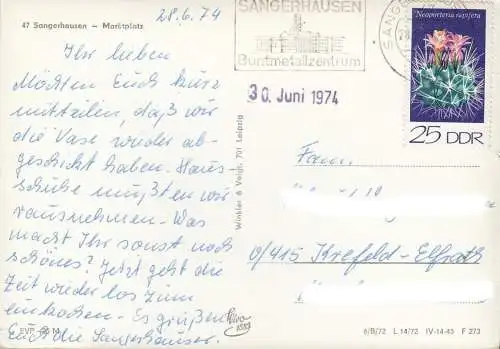 47 Sangerhausen – Marktplatz
28.6.74
Ihr lieben
Möchten Euch kurz
mitteilen, daß wir
die Vase wieder ab-
geschickt haben. Haus-
schuhe mußten wir
rausnehmen. Was
macht Ihr sonst noch
schönes? Jetzt geht die
Zeit wieder los zum
einkochen. Es grüßen
Euch die Sangerhäuser.
EVP
Winkler & Voigt, 701 Leipzig
SANGERHAUSEN
Buntmetallzentrum
SANGER
30. Juni 1974
Neoporteria rapifera
25 DDR
Fam.
0/415 Krefeld-Elfrath
6/B/72 L 14/72 IV-14-45 F 273